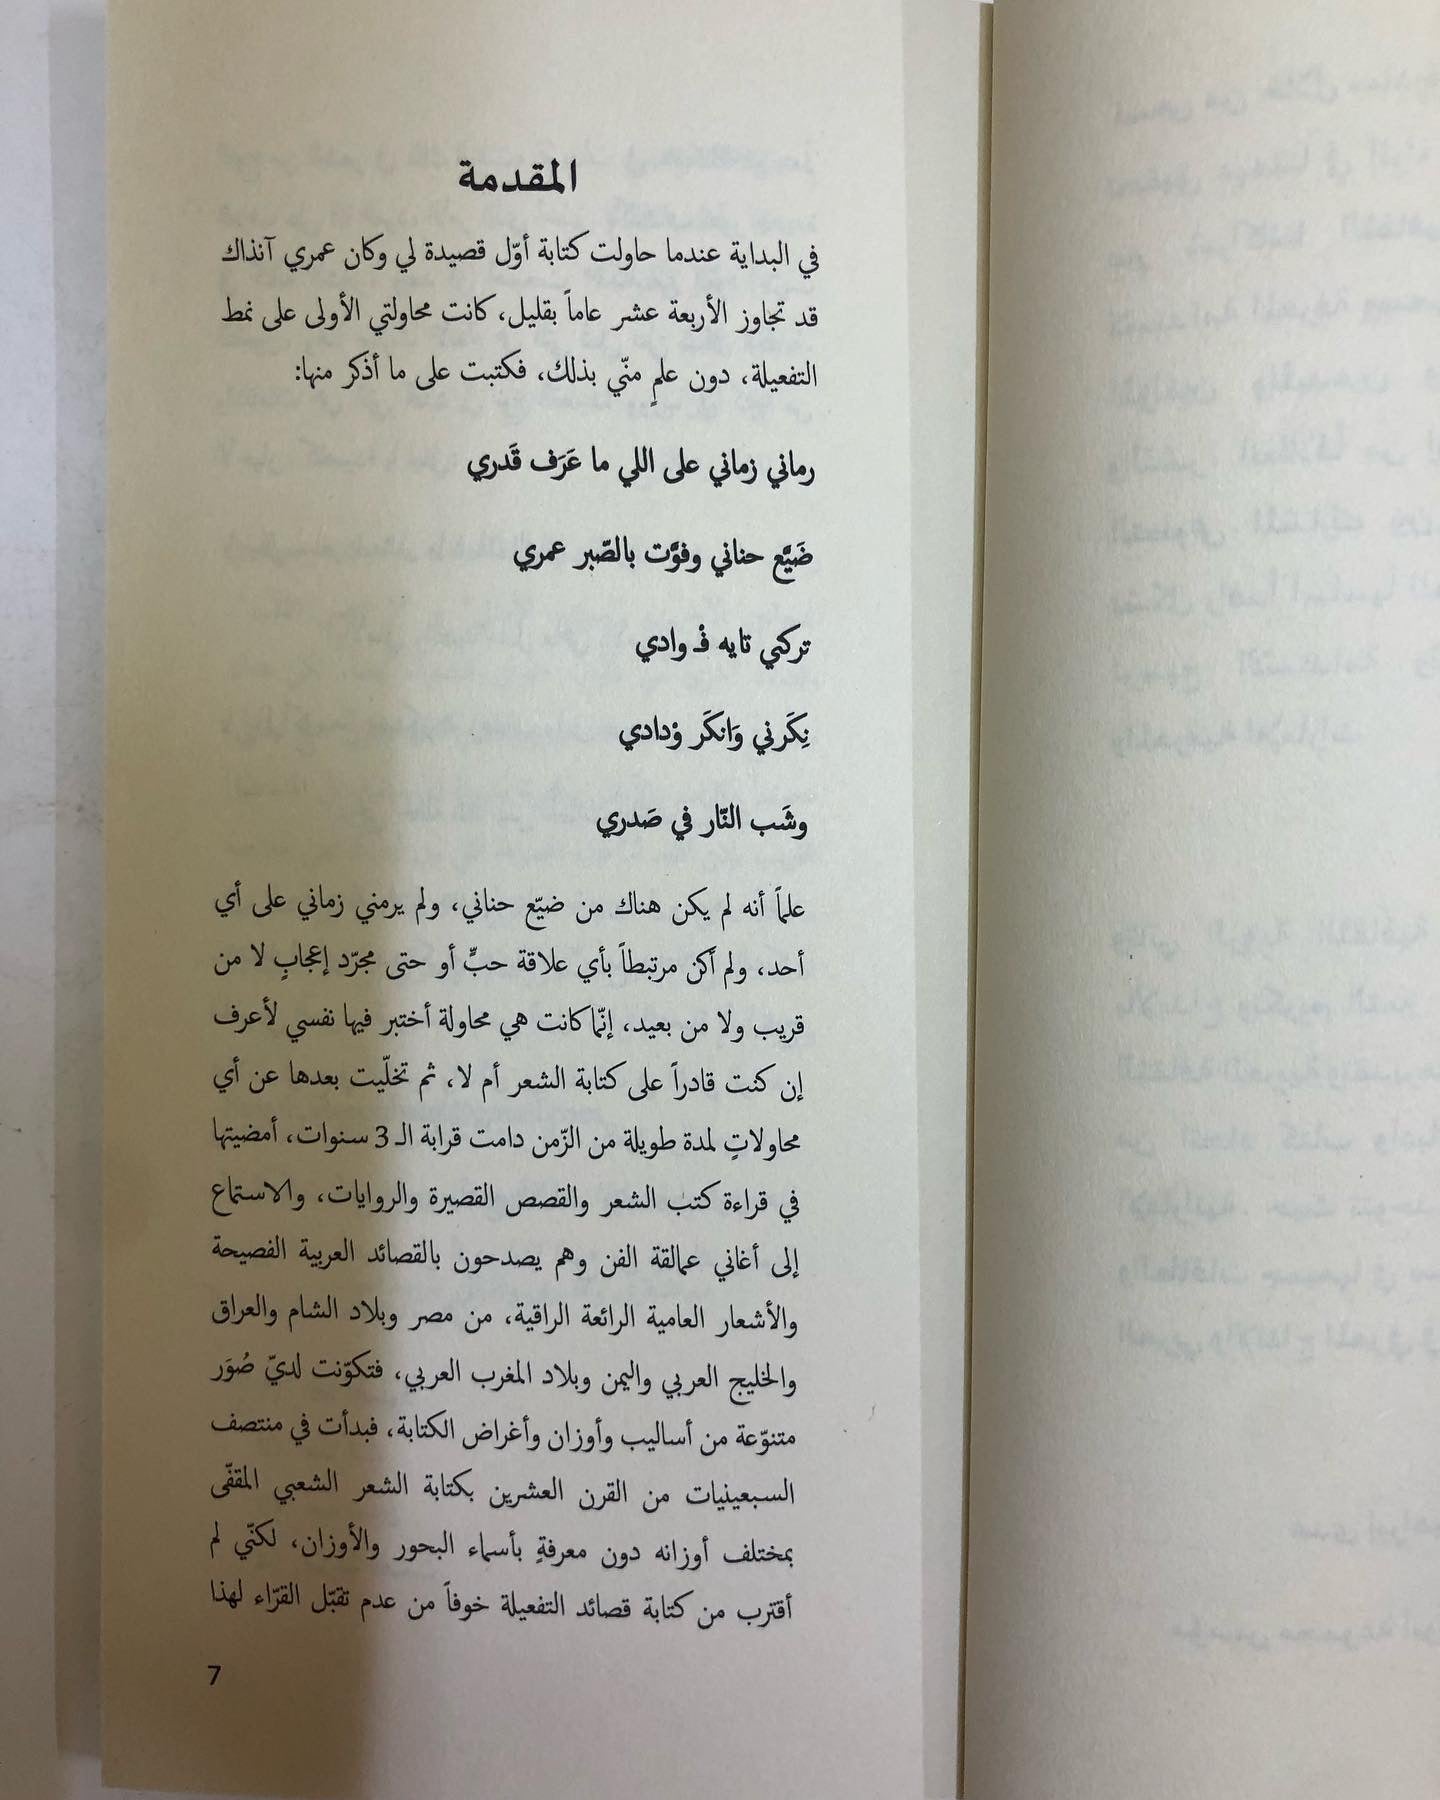 المقدمة
في البداية عندما حاولت كتابة أوّل قصيدة لي وكان عمري آنذاك
قد تجاوز الأربعة عشر عاماً بقليل، كانت محاولتي الأولى على نمط
التفعيلة، دون علمٍ منّي بذلك، فكتبت على ما أذكر منها:
رماني زماني على اللي ما عَرَف قَدري
ضَيَّع حناني وفوَّت بالصّبر عمري
تركني تايه فْـ وادي
نِكَرني وَانكَر وْدادي
وشَب النّار في صَدري
علماً أنه لم يكن هناك من ضيّع حناني، ولم يرمني زماني على أي
أحد، ولم أكن مرتبطاً بأي علاقة حبٍّ أو حتى مجرّد إعجابٍ لا من
قريب ولا من بعيد، إنّما كانت هي محاولة أختبر فيها نفسي لأعرف
إن كنت قادراً على كتابة الشعر أم لا، ثم تخلّيت بعدها عن أي
محاولاتٍ لمدة طويلة من الزّمن دامت قرابة الـ 3 سنوات، أمضيتها
في قراءة كتب الشعر والقصص القصيرة والروايات، والاستماع
إلى أغاني عمالقة الفن وهم يصدحون بالقصائد العربية الفصيحة
والأشعار العامية الرائعة الراقية، من مصر وبلاد الشام والعراق
والخليج العربي واليمن وبلاد المغرب العربي، فتكوّنت لديّ صُوَر
متنوّعة من أساليب وأوزان وأغراض الكتابة، فبدأت في منتصف
السبعينيات من القرن العشرين بكتابة الشعر الشعبي المقفّى
بمختلف أوزانه دون معرفةٍ بأسماء البحور والأوزان، لكنّي لم
أقترب من كتابة قصائد التفعيلة خوفاً من عدم تقبّل القرّاء لهذا
7